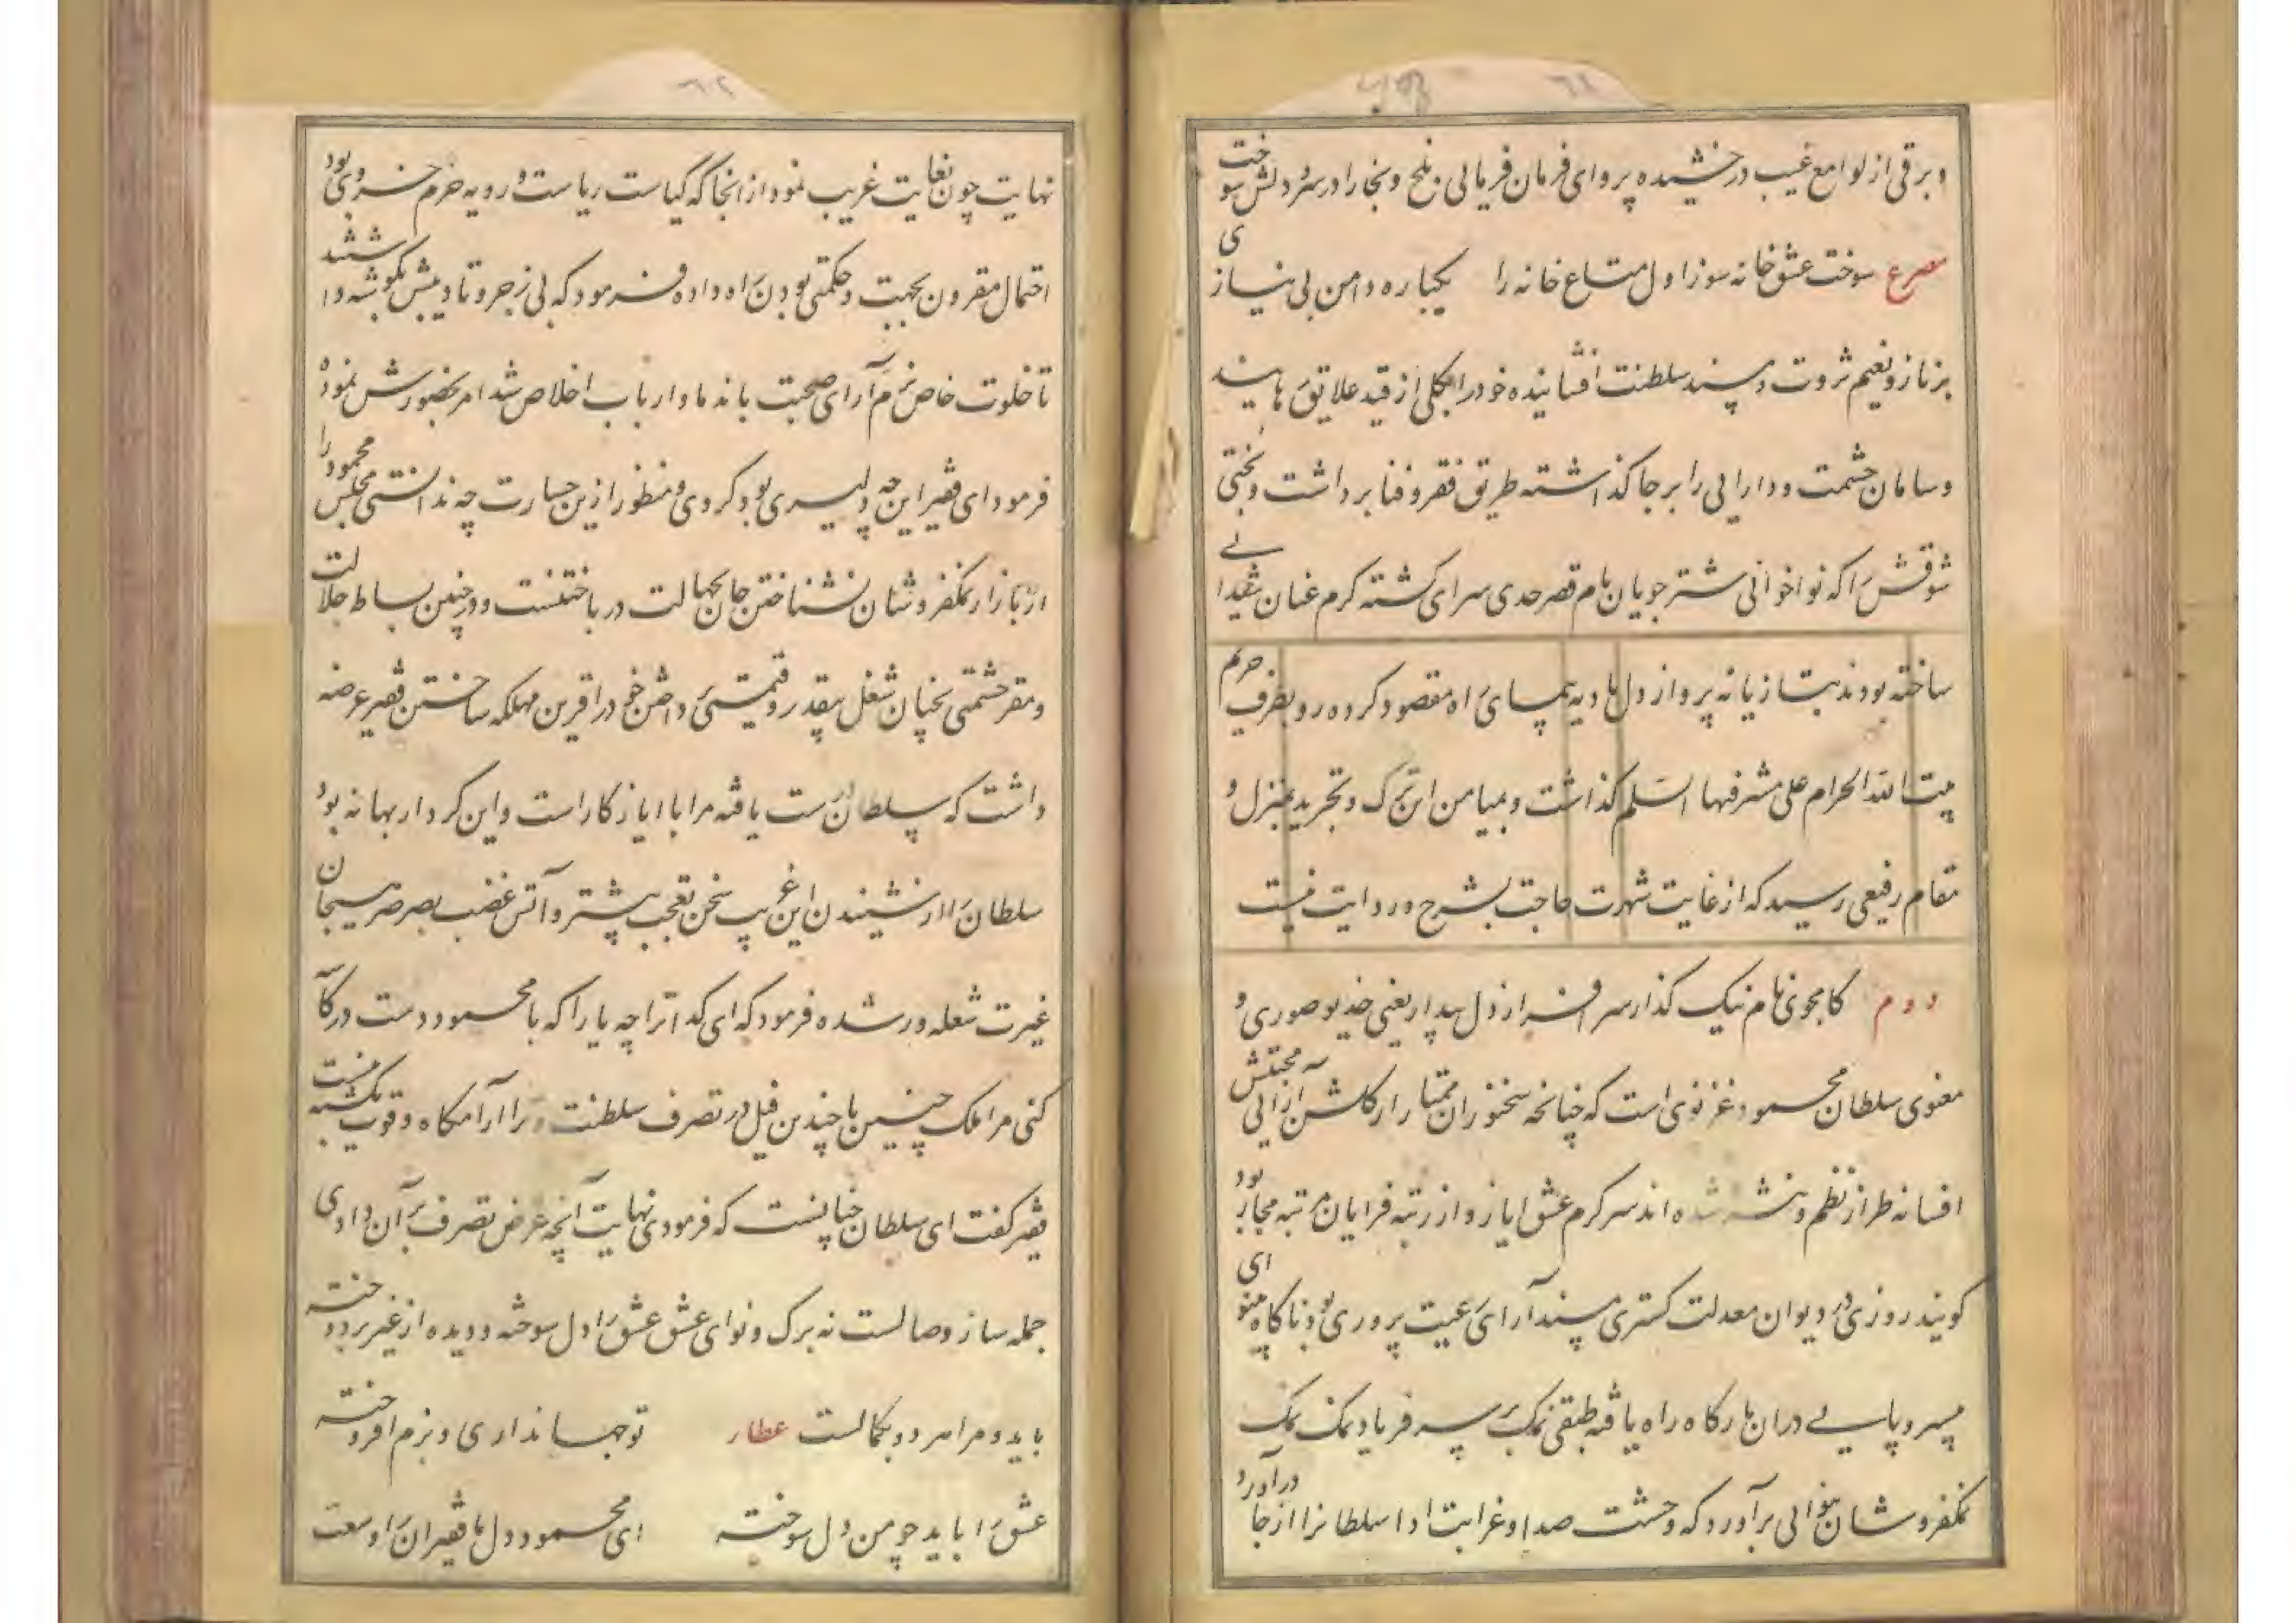 و برقی از لوامع غیب درخشیده پروای فرمان فرمایی بلخ و بخارا در سر و دلش سوخت
مصرع سوخت عشق خانه سوز اول متاع خانه را یکباره دامن بی نیازی
بر ناز و نعیم ثروت و مسند سلطنت افشانیده خود را بکلی از قید علایق رهانید
و سامان حشمت و دارایی را بر جا گذاشته طریق فقر و فنا برداشت و بختی
شوقش را که نواخوانی شتر جویان بام قصر حدی سرای گشته گرم عنان شیدایی
ساخته بودند بتازیانه پرواز دل بادیه پیمای راه مقصود کرده رو بطرف حرم
بیت الله الحرام علی مشرفها السلم گذاشت و بمیامن این ترک و تجرید بمنزل و
مقام رفیعی رسید که از غایت شهرت حاجت بشرح و روایت نیست
دوم کامجوی نام نیک گذار سرافراز دل بیدار یعنی خدیو صوری و
معنوی سلطان محمود غزنوی است که چنانچه سخنوران ممتاز از گلشن آرایی محبتش
افسانه طراز نظم و نثر شده اند سرگرم عشق ایاز و از رتبه فرایان مرتبه مجاز بود
گویند روزی در دیوان معدلت گستری مسند آرای رعیت پروری بود ناگاه بینوای
بیسروپایی در ان بارگاه راه یافته طبقی نمک بر سر فریاد نمک نمک
نمکفروشان بنوایی برآورد که وحشت صدا و غرابت ادا سلطانرا از جا درآورد
نهایت چون بغایت غریب نمود از انجا که کیاست ریاست و رویه حزم خسروی بود
احتمال مقرون بجهت و حکمتی بودن راه داده فرمود که بی زجر و تادیبش بگوشه داشتند
تا خلوت خاص بزم آرای صحبت باندما و ارباب اخلاص شد امر بحضورش نموده
فرمود ای فقیر این چه دلیری بود کردی و منظور ازین جسارت چه ندانستی مجلس محمود را
از بازار نمکفروشان نشناختن جان بجهالت در باختنست و در چنین بساط جلالت
و مقر حشمتی بچنان شغل بیقدر و قیمتی پرداختن خود را قرین مهلکه ساختن فقیر عرضه
داشت که سلطان راست یافته مرا با ایاز کار است و این کردار بهانه بود
سلطان را از شنیدن این غریب سخن تعجب بیشتر و آتش غضب بصرصر هیجان
غیرت شعله ور شده فرمود که ای گدا ترا چه یارا که با محمود دست در کاسه
کنی مرا ملک چنین با چندین فیل در تصرف سلطنت و ترا آرامگاه و قوت یکشبه نیست
فقیر گفت ای سلطان چنانست که فرمودی نهایت آنچه عرض تصرف بر آن دادی
جمله ساز وصالست نه برگ و نوای عشق عشق را دل سوخته و دیده از غیر بردوخته
باید و مرا مر دو بکمالست عطار تو جهانداری و بزم افروخته
عشق را باید چو من دل سوخته ای محمود دل با فقیران را وسعت